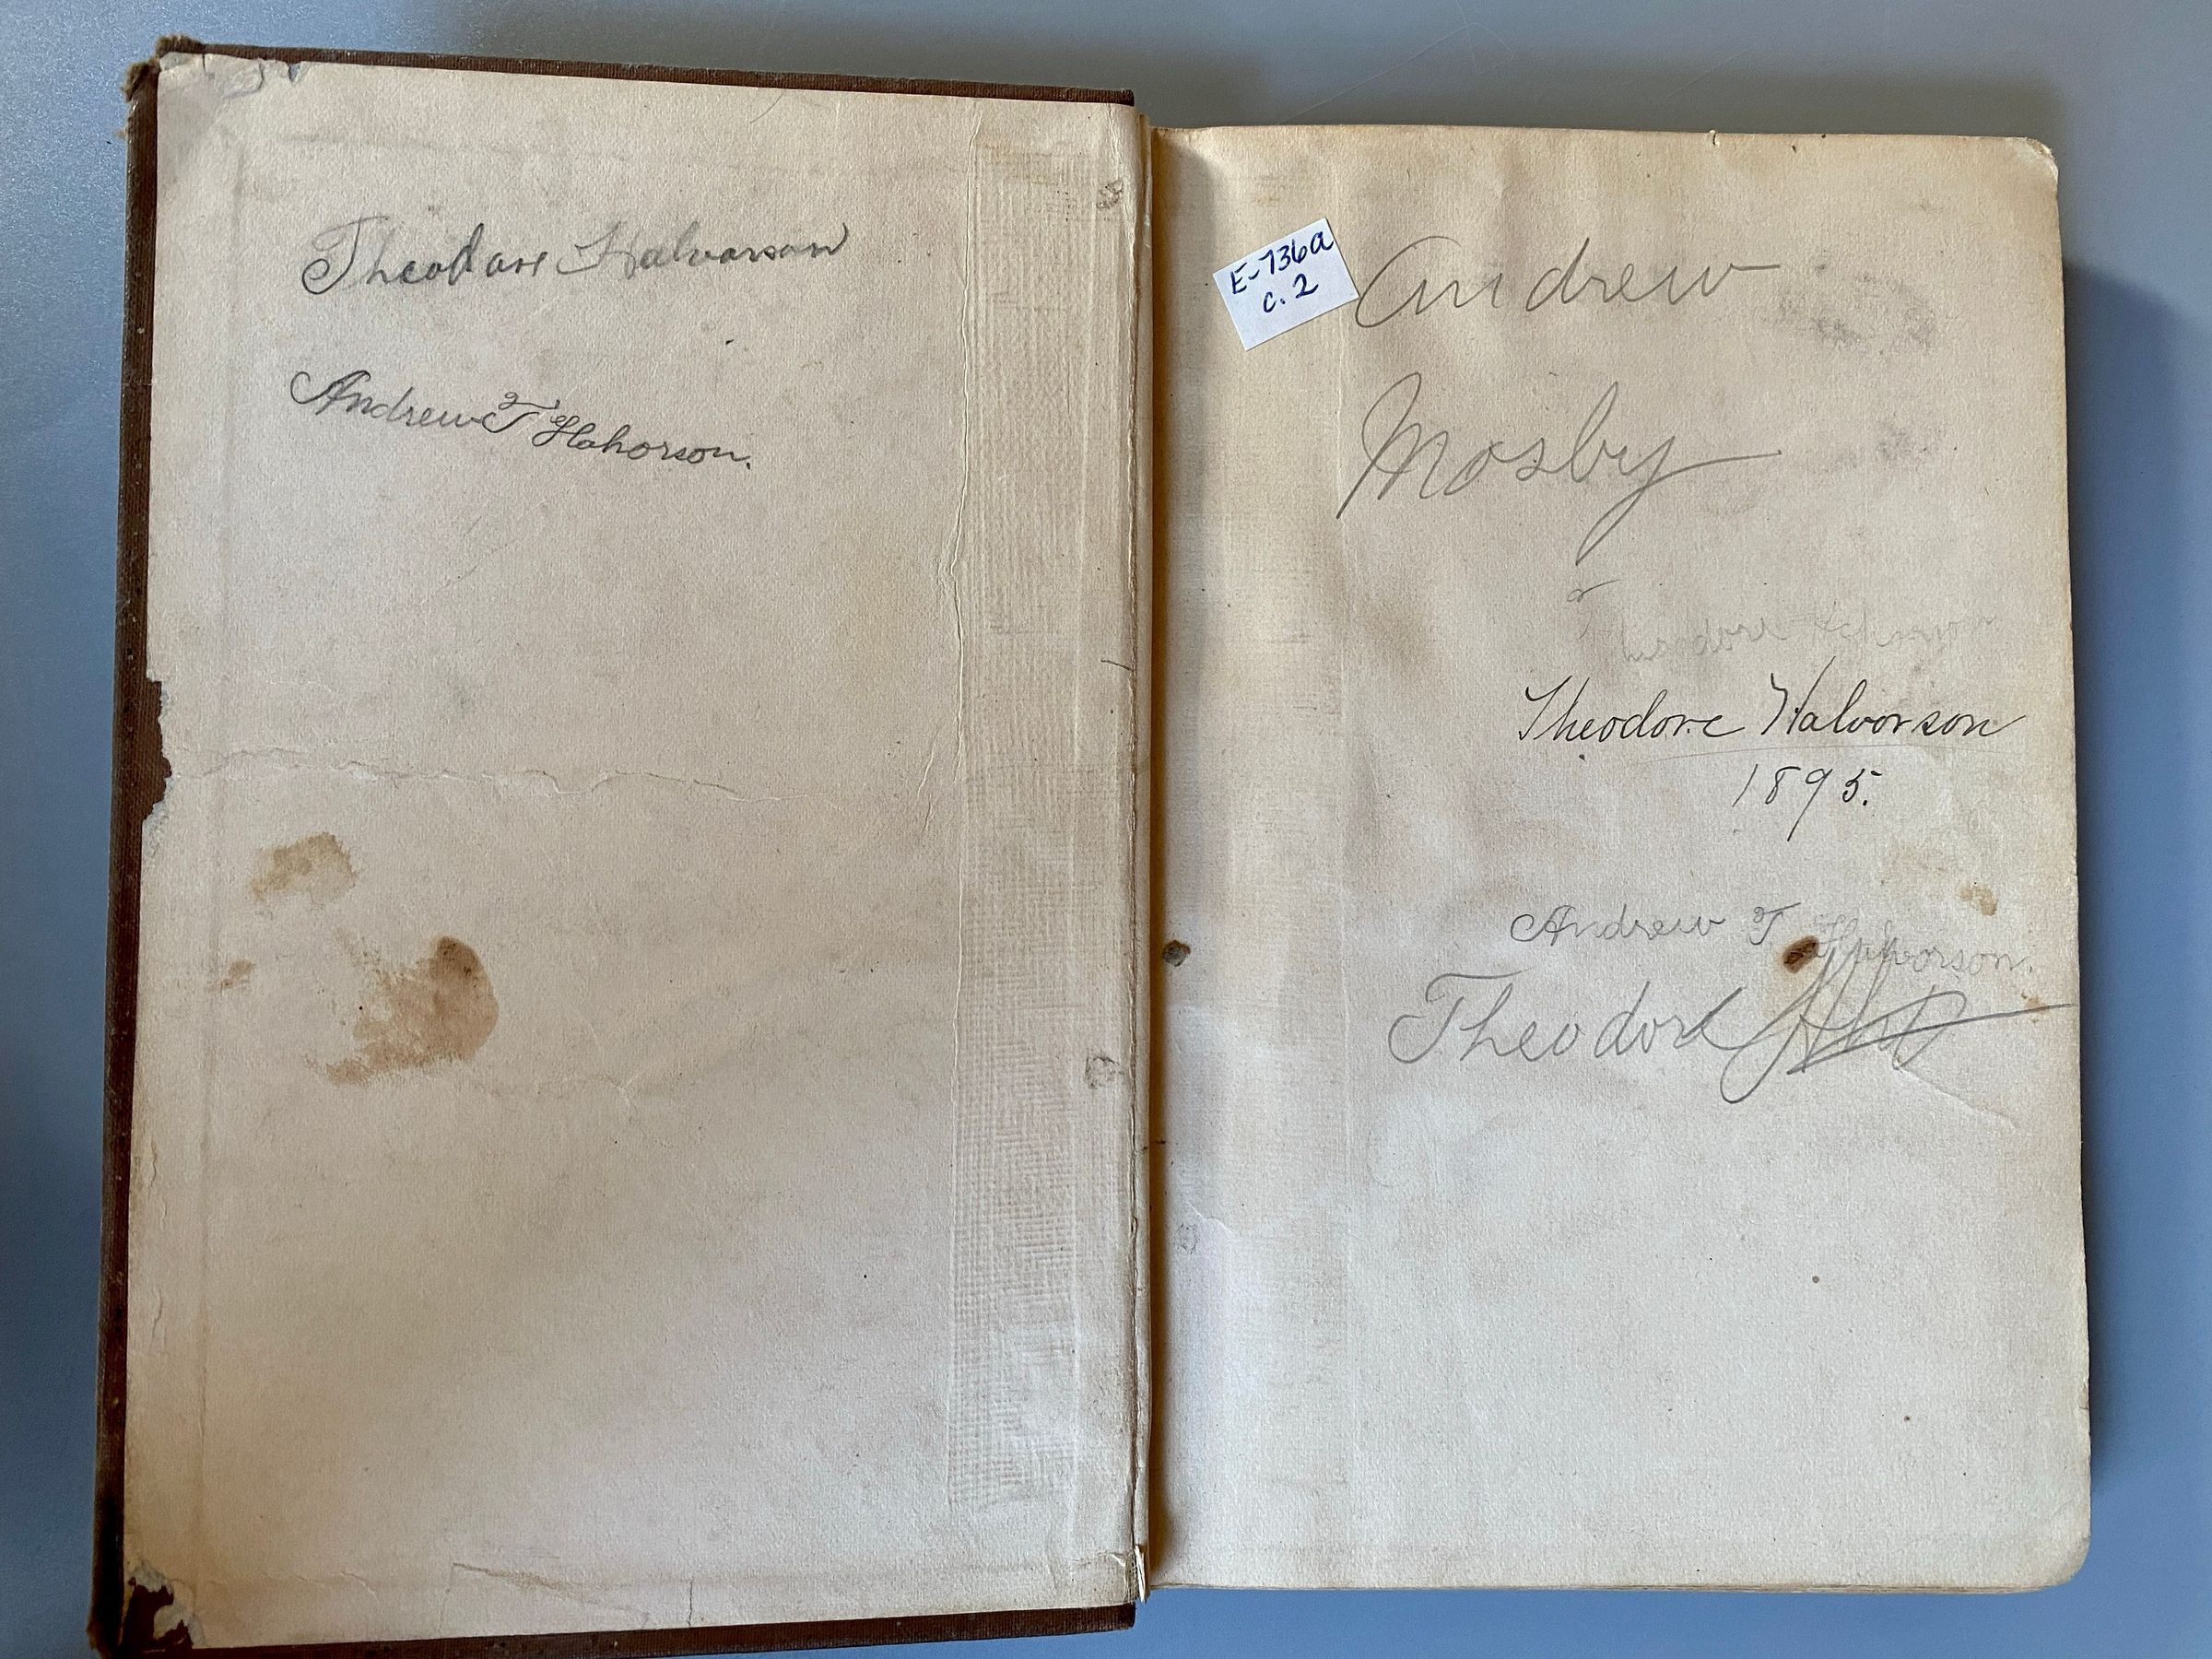 Theodore Halvorson
Andrew T Halvorson.
E-736a
c. 2
Andrew
Mosby
Theodore
Theodore Halvorson
1895.
Andrew T Halvorson.
Theodore